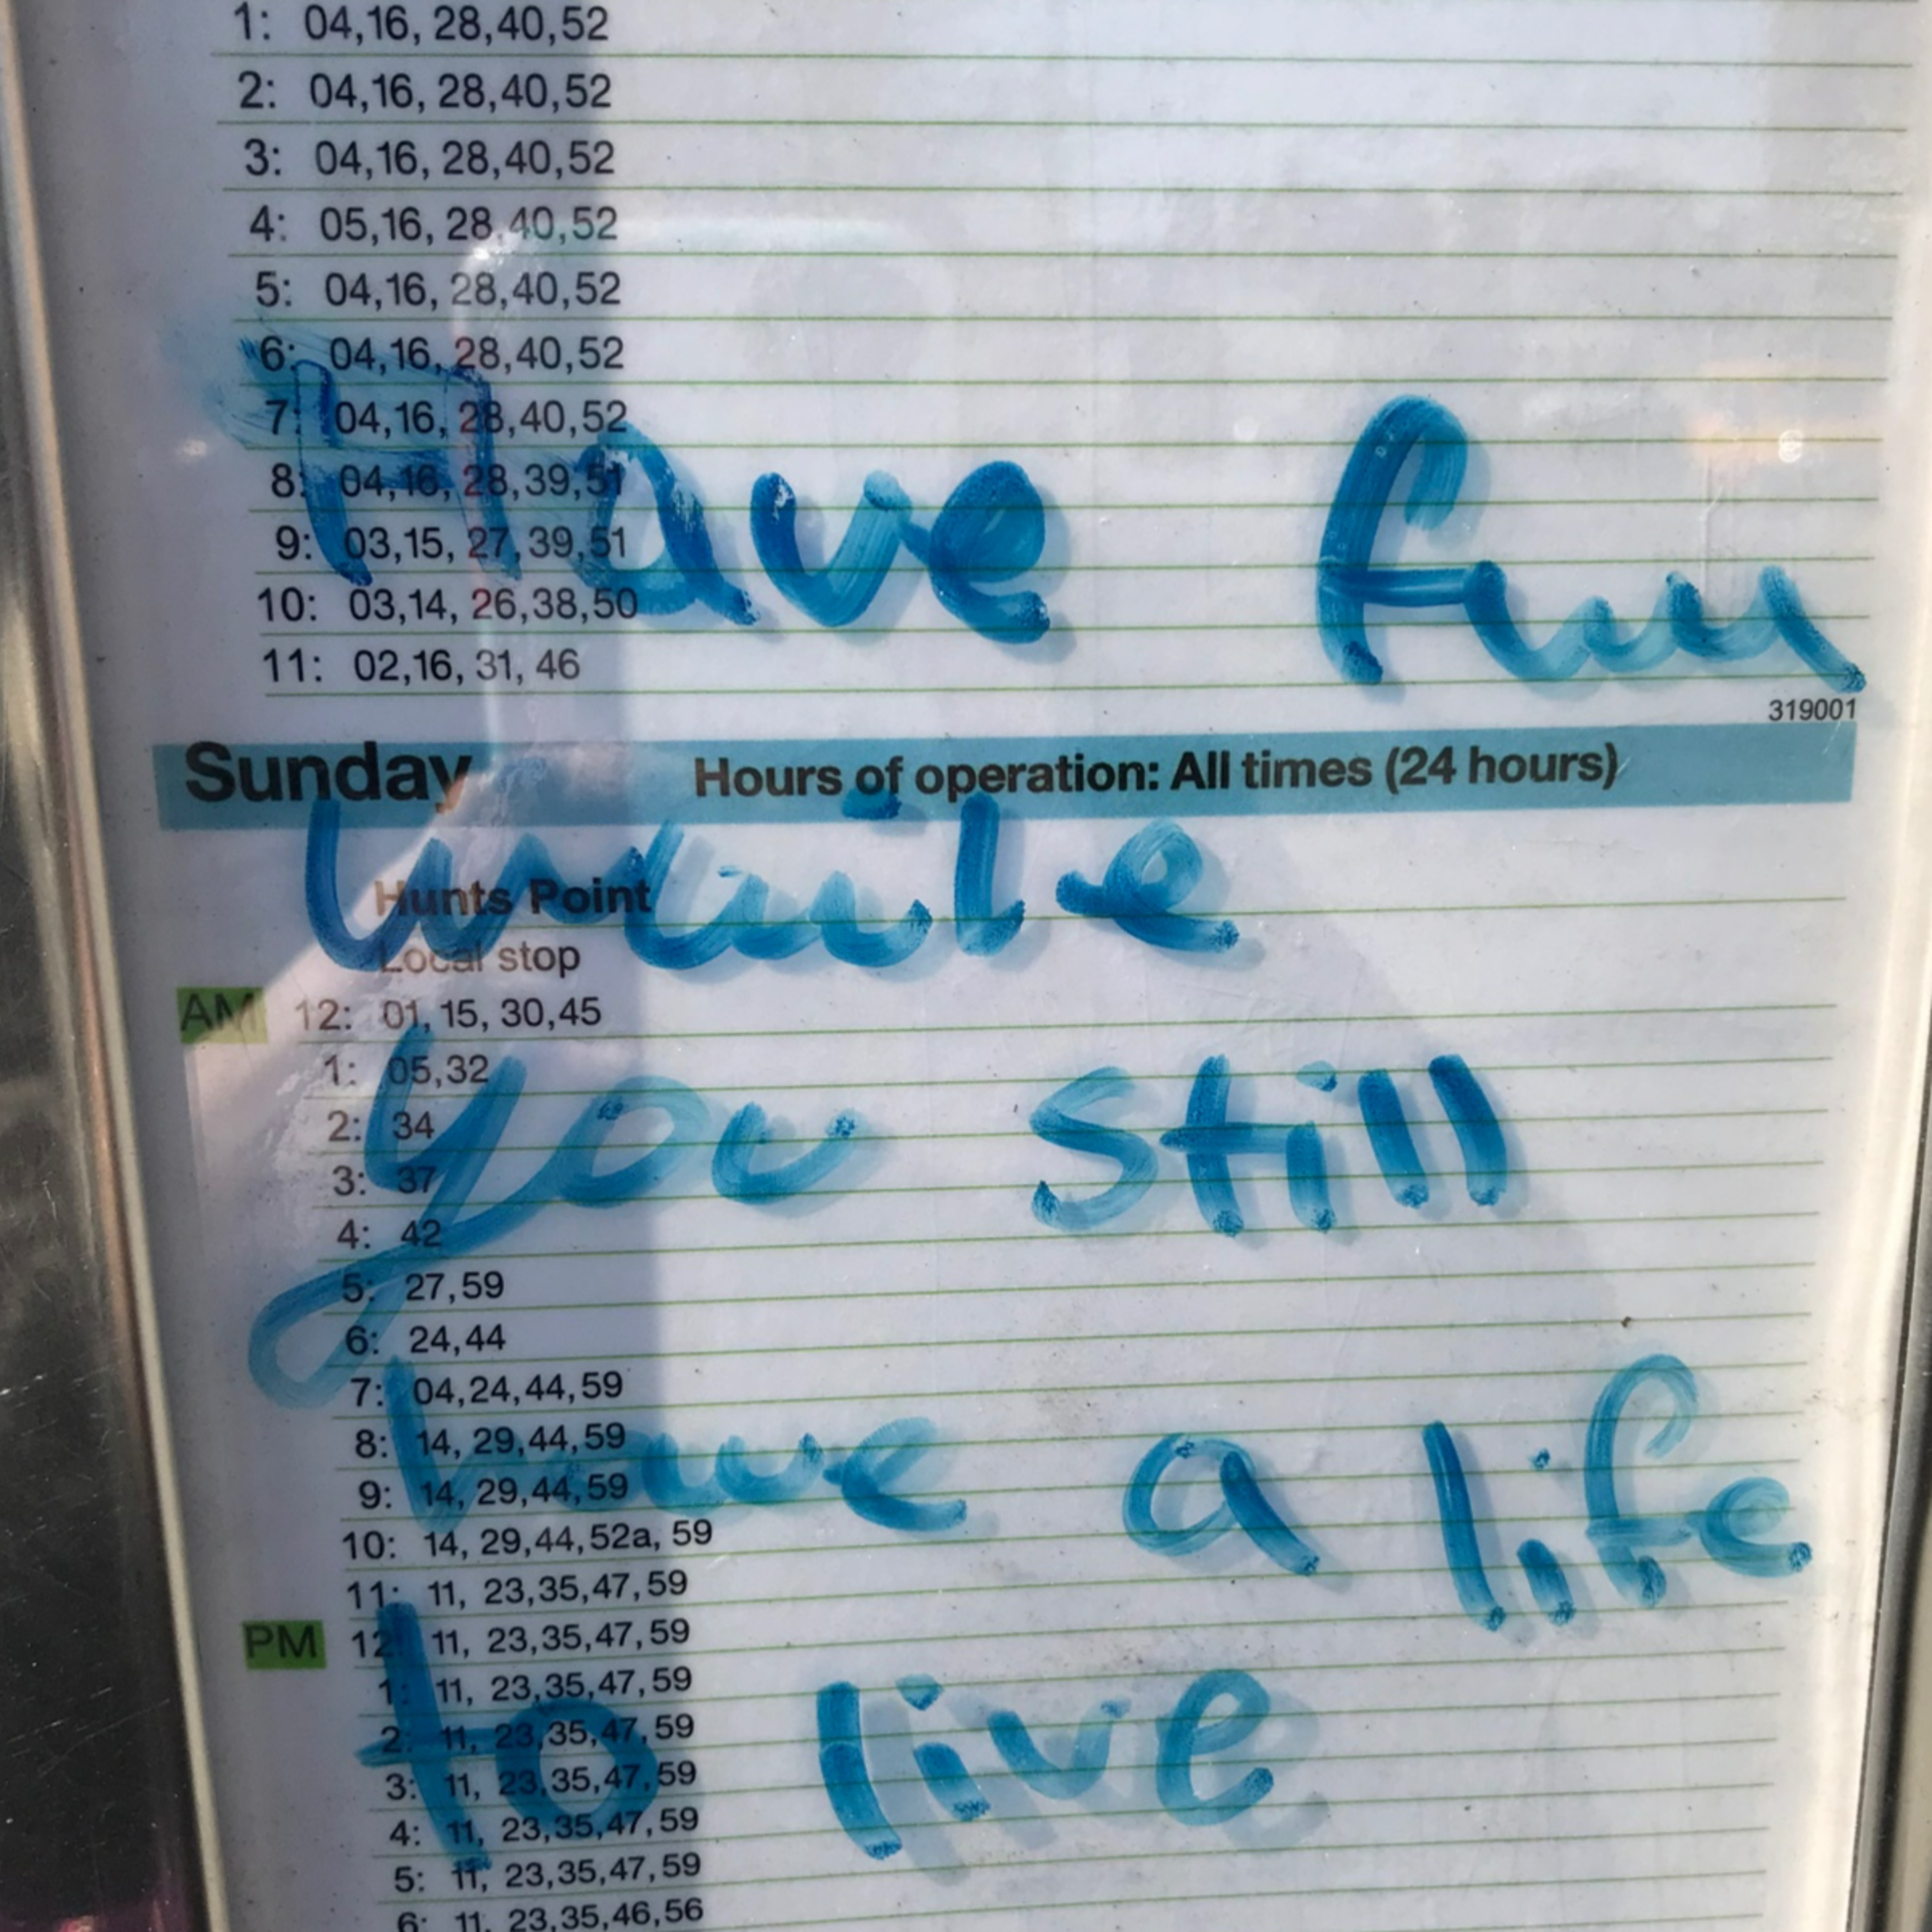 1: 04,16, 28,40,52
2: 04,16, 28,40,52
3: 04,16, 28,40,52
4: 05,16, 28,40,52
5: 04,16, 28,40,52
6: 04,16, 28,40,52
7: 04,16, 28,40,52
8: 04,16, 28,39,51
9: 03,15, 27,39,51
10: 03,14, 26,38,50
11: 02,16, 31, 46
Have fun
319001
Sunday Hours of operation: All times (24 hours)
while
Hunts Point
Local stop
AM 12: 01, 15, 30,45
1: 05,32
2: 34
3: 37
you still
4: 42
5: 27,59
6: 24,44
7: 04,24,44,59
8: 14, 29,44,59
9: 14, 29,44,59
have a life
10: 14, 29,44,52a, 59
11: 11, 23,35,47,59
PM 12: 11, 23,35,47,59
1: 11, 23,35,47,59
2: 11, 23,35,47,59
to live
3: 11, 23,35,47,59
4: 11, 23,35,47,59
5: 11, 23,35,47,59
6: 11, 23,35,46,56